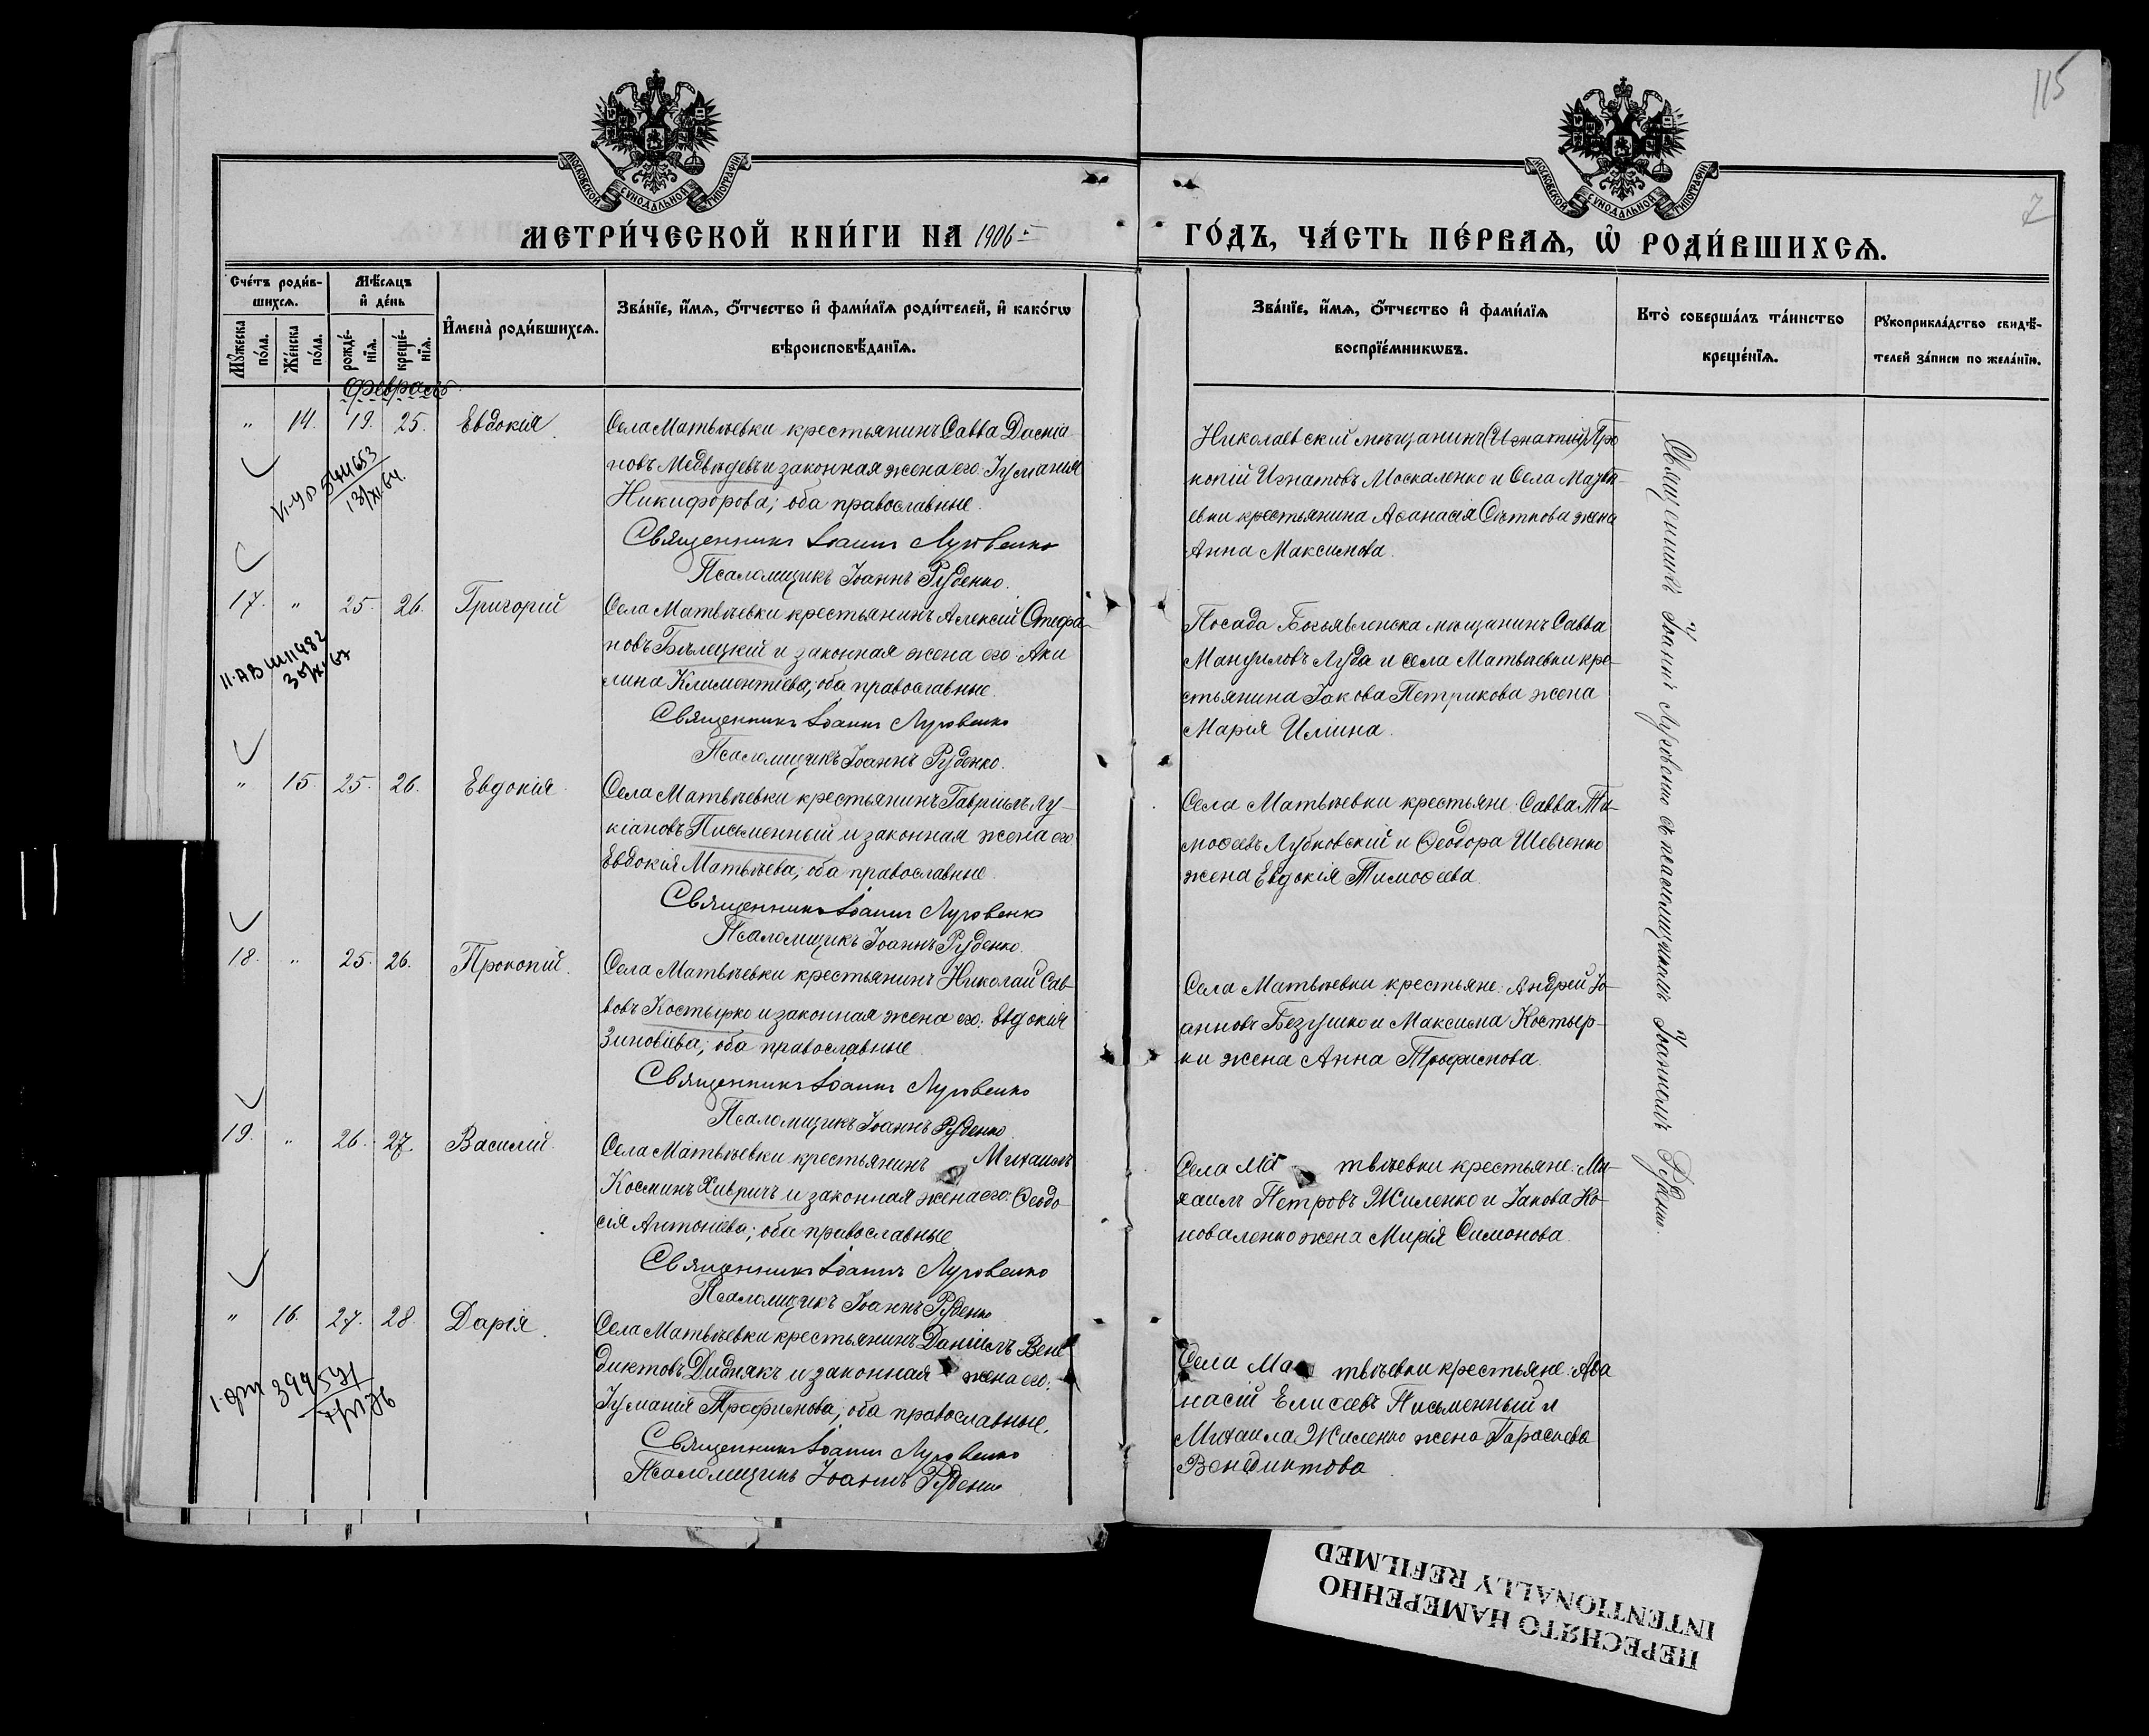 115
7
МОСКОВСКОЙ СѴНОДАЛЬНОЙ ТИПОГРАФІИ
МОСКОВСКОЙ СѴНОДАЛЬНОЙ ТИПОГРАФІИ
МЕТРИ́ЧЕСКОЙ КНИ́ГИ НА 1906
ГО́ДЪ, ЧА́СТЬ ПЕ́РВАѦ, Ѡ҆ РОДИ́ВШИХСѦ.
Сче́тъ роди́в-
шихсѧ.
Мѹ́жеска по́ла.
Же́нска по́ла.
Мѣ́сѧцъ
и҆ де́нь
рожде́-
нїѧ.
креще́-
нїѧ.
И҆мена̀ роди́вшихсѧ.
Зва́нїе, и҆́мѧ, ѻ҆́тчество и҆ фами́лїѧ роди́телей, и҆ како́гѡ
вѣроисповѣ́данїѧ.
Зва́нїе, и҆́мѧ, ѻ҆́тчество и҆ фами́лїѧ
воспрїе́мникѡвъ.
Кто̀ соверша́лъ та́инство
креще́нїѧ.
Рѹкоприкла́дство свидѣ́-
телей за́писи по жела́нїю.
Февраль.
" 14. 19. 25. Евдокія
Села Матвѣевки крестьянинъ Савва Даміа
новъ Медвѣдевъ и законная жена его: Іуманія
Никифорова; оба православные.
Священникъ Іоаннъ Луговенко
Псаломщикъ Іоаннъ Руденко.
Николаевскій мѣщанинъ (Игнатій) Про
копій Игнатовъ Москаленко и Села Матвѣ-
евки крестьянина Аѳанасія Сѣткова жена
Анна Максимова.
VI-УР 544653
13/XI 64.
17. " 25. 26. Григорій
Села Матвѣевки крестьянинъ Алексій Стефа-
новъ Бѣлецкій и законная жена его: Аки
лина Климентіева; оба православные.
Священникъ Іоаннъ Луговенко
Псаломщикъ Іоаннъ Руденко.
Посада Богоявленска мѣщанинъ Савва
Мануиловъ Луда и села Матвѣевки кре-
стьянина Іакова Петрикова жена
Марія Иліина.
" 15. 25. 26. Евдокія
Села Матвѣевки крестьянинъ Гавріилъ Лу-
кіановъ Письменный и законная жена его
Евдокія Матвѣева; оба православные.
Священникъ Іоаннъ Луговенко
Псаломщикъ Іоаннъ Руденко.
Села Матвѣевки крестьяне: Савва Ти-
моѳеевъ Лубковскій и Ѳеодора Шевченко
жена Евдокія Тимоѳеева.
18. " 25. 26. Прокопій.
Села Матвѣевки крестьянинъ Николай Сав-
вовъ Костырко и законная жена его: Евдокія
Зиновіева; оба православные.
Священникъ Іоаннъ Луговенко
Псаломщикъ Іоаннъ Руденко
Села Матвѣевки крестьяне: Андрей Іо-
анновъ Безушко и Максима Костыр-
ки жена Анна Трофимова.
19. " 26. 27. Василій.
Села Матвѣевки крестьянинъ Михаилъ
Косминъ Хивричъ и законная жена его: Ѳеодо-
сія Антоніева; оба православные
Священникъ Іоаннъ Луговенко
Псаломщикъ Іоаннъ Руденко
Села Матвѣевки крестьяне: Ми-
хаилъ Петровъ Жиленко и Іакова Ко-
новаленко жена Марія Симонова.
" 16. 27. 28. Дарія.
Села Матвѣевки крестьянинъ Даніилъ Вене
диктовъ Диднякъ и законная жена его:
Іуманія Трофимова; оба православные.
Священникъ Іоаннъ Луговенко
Псаломщикъ Іоаннъ Руденко
Села Матвѣевки крестьяне: Аѳа
насій Елисеевъ Письменный и
Михаила Жиленко жена Параскева
Венедиктова
Священникъ Іоаннъ Луговенко съ псаломщикомъ Іоанномъ Руденко.
ПЕРЕСНЯТО НАМЕРЕННО
INTENTIONALLY REFILMED